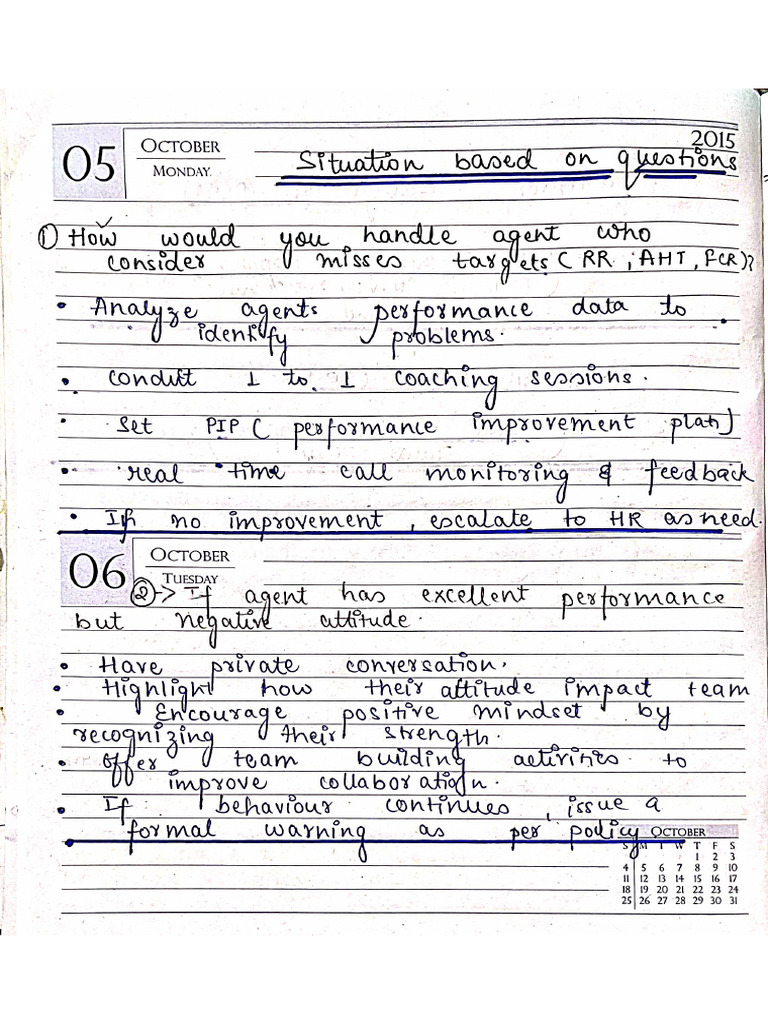 2015
05 OCTOBER
MONDAY
Situation based on questions
① How would you handle agent who
consider misses targets ( RR, AHT, FCR)?
• Analyze agents performance data to
identify problems.
• Conduct 1 to 1 coaching sessions.
• Set PIP ( performance improvement plan)
• real time call monitoring & feedback
• If no improvement, escalate to HR as need.
06 OCTOBER
TUESDAY
② -> If agent has excellent performance
but negative attitude.
• Have private conversation.
• Highlight how their attitude impact team
• Encourage positive mindset by
recognizing their strength.
• offer team building activities to
improve collaboration.
• If behaviour continues, issue a
formal warning as per policy
OCTOBER
S M T W T F S
1 2 3
4 5 6 7 8 9 10
11 12 13 14 15 16 17
18 19 20 21 22 23 24
25 26 27 28 29 30 31